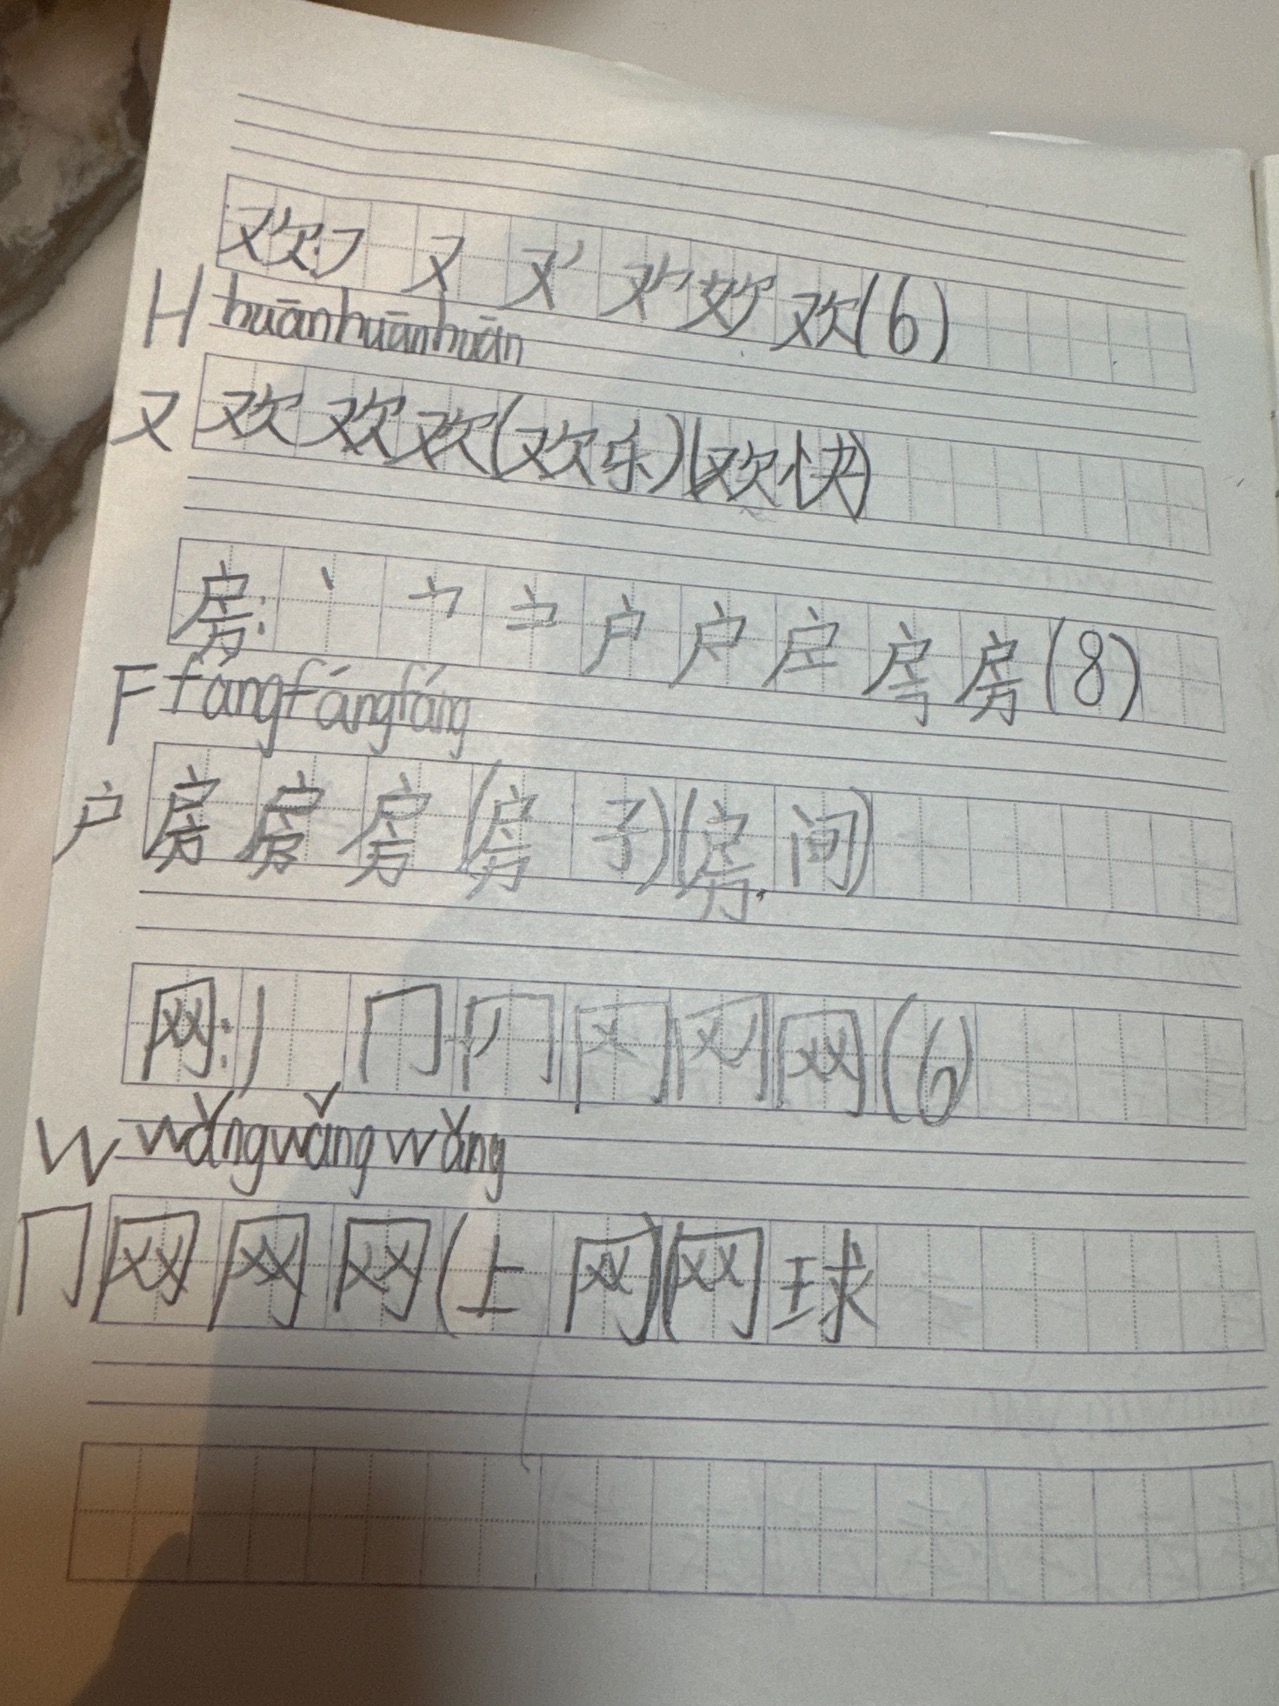 欢:㇇ 又 欢(6)
H huānhuānhuān
又 欢欢欢(欢乐)(欢快)
房:丶 户 房(8)
F fángfángfáng
户 房房房(房子)(房间)
网:丨 冂 网(6)
W wǎngwǎngwǎng
冂 网网网(上网)(网球